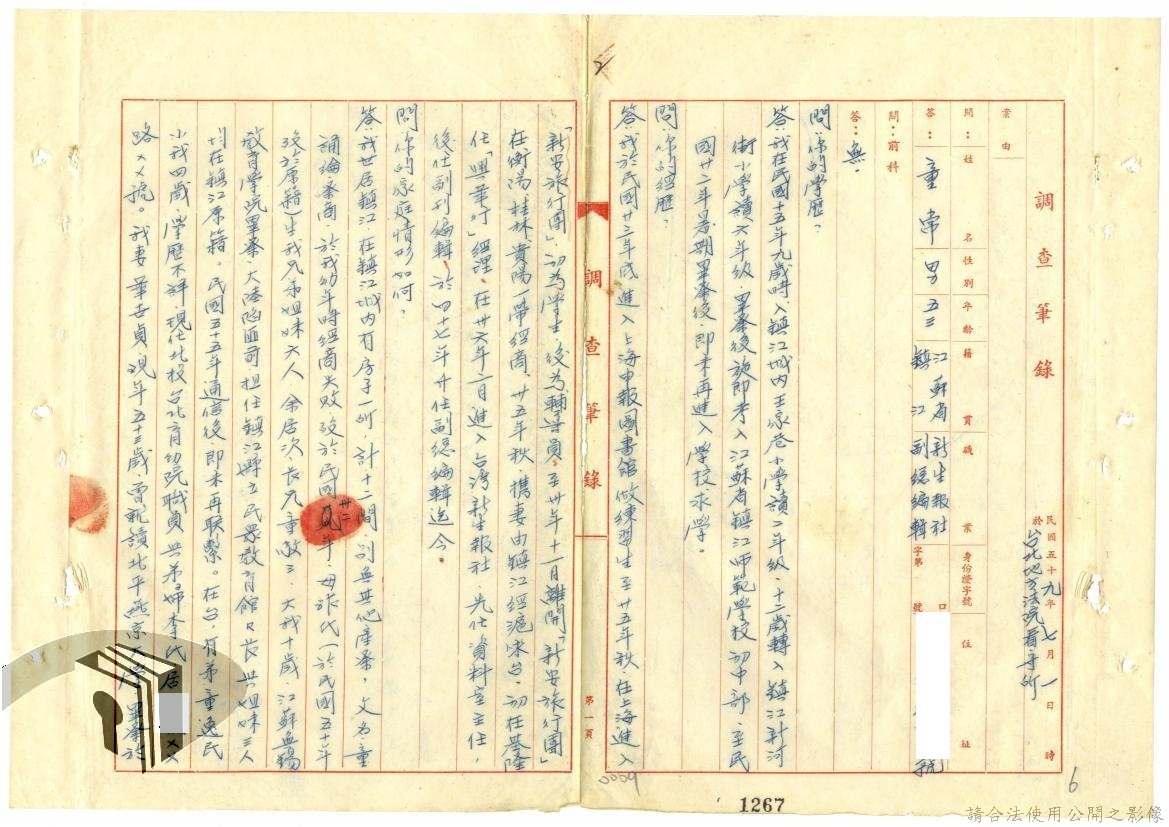 調查筆錄
民國五十九年七月一日 時
於台北地方法院看守所
案由
問：姓名 性別 年齡 籍貫 職業 身份證字號 住址
答：童常 男 五三 江蘇省鎮江 新生報社副總編輯 字第 號 口 號
問：前科
答：無。
問：你的學歷？
答：我在民國十五年九歲時入鎮江城內王家巷小學讀二年級，十二歲轉入鎮江新河
街小學讀六年級，畢業後旋即考入江蘇省鎮江師範學校初中部，至民
國廿二年暑期畢業後，即未再進入學校求學。
問：你的經歷？
答：我於民國廿二年底進入上海申報圖書館做練習生至廿五年秋，在上海進入
調查筆錄
第一頁
「新安旅行團」，初為學生，後為輔導員，至卅年十一月離開「新安旅行團」
在衡陽桂林貴陽一帶經商，卅五年秋，携妻由鎮江經滬來台，初在基隆
任「興華行」經理，在卅六年一日進入台灣新生報社，先任資料室主任，
後任副刊編輯，於四十七年升任副總編輯迄今。
問：你的家庭情形如何？
答：我世居鎮江，在鎮江城內有房子一所，計十二間，別無其他產業，父名童
誦綸業商，於我幼年時經商失敗，歿於民國卅二年，母張氏（於民國五十年
歿於原籍）生我兄弟姐妹六人，余居次，長兄童敬三，大我十歲，江蘇無錫
教育學院畢業，大陸陷匪前担任鎮江縣立民眾教育館館長，其姐妹三人
均在鎮江原籍。民國五十五年通信後，即未再聯繫。在台，有弟童逸民
小我四歲，學歷不詳，現任北投台北育幼院職員，其弟婦李氏居 ××
路××號。我妻華古貞，現年五十三歲，曾就讀北平燕京大學，畢業於
2
6
0009
1267
請合法使用公開之影像